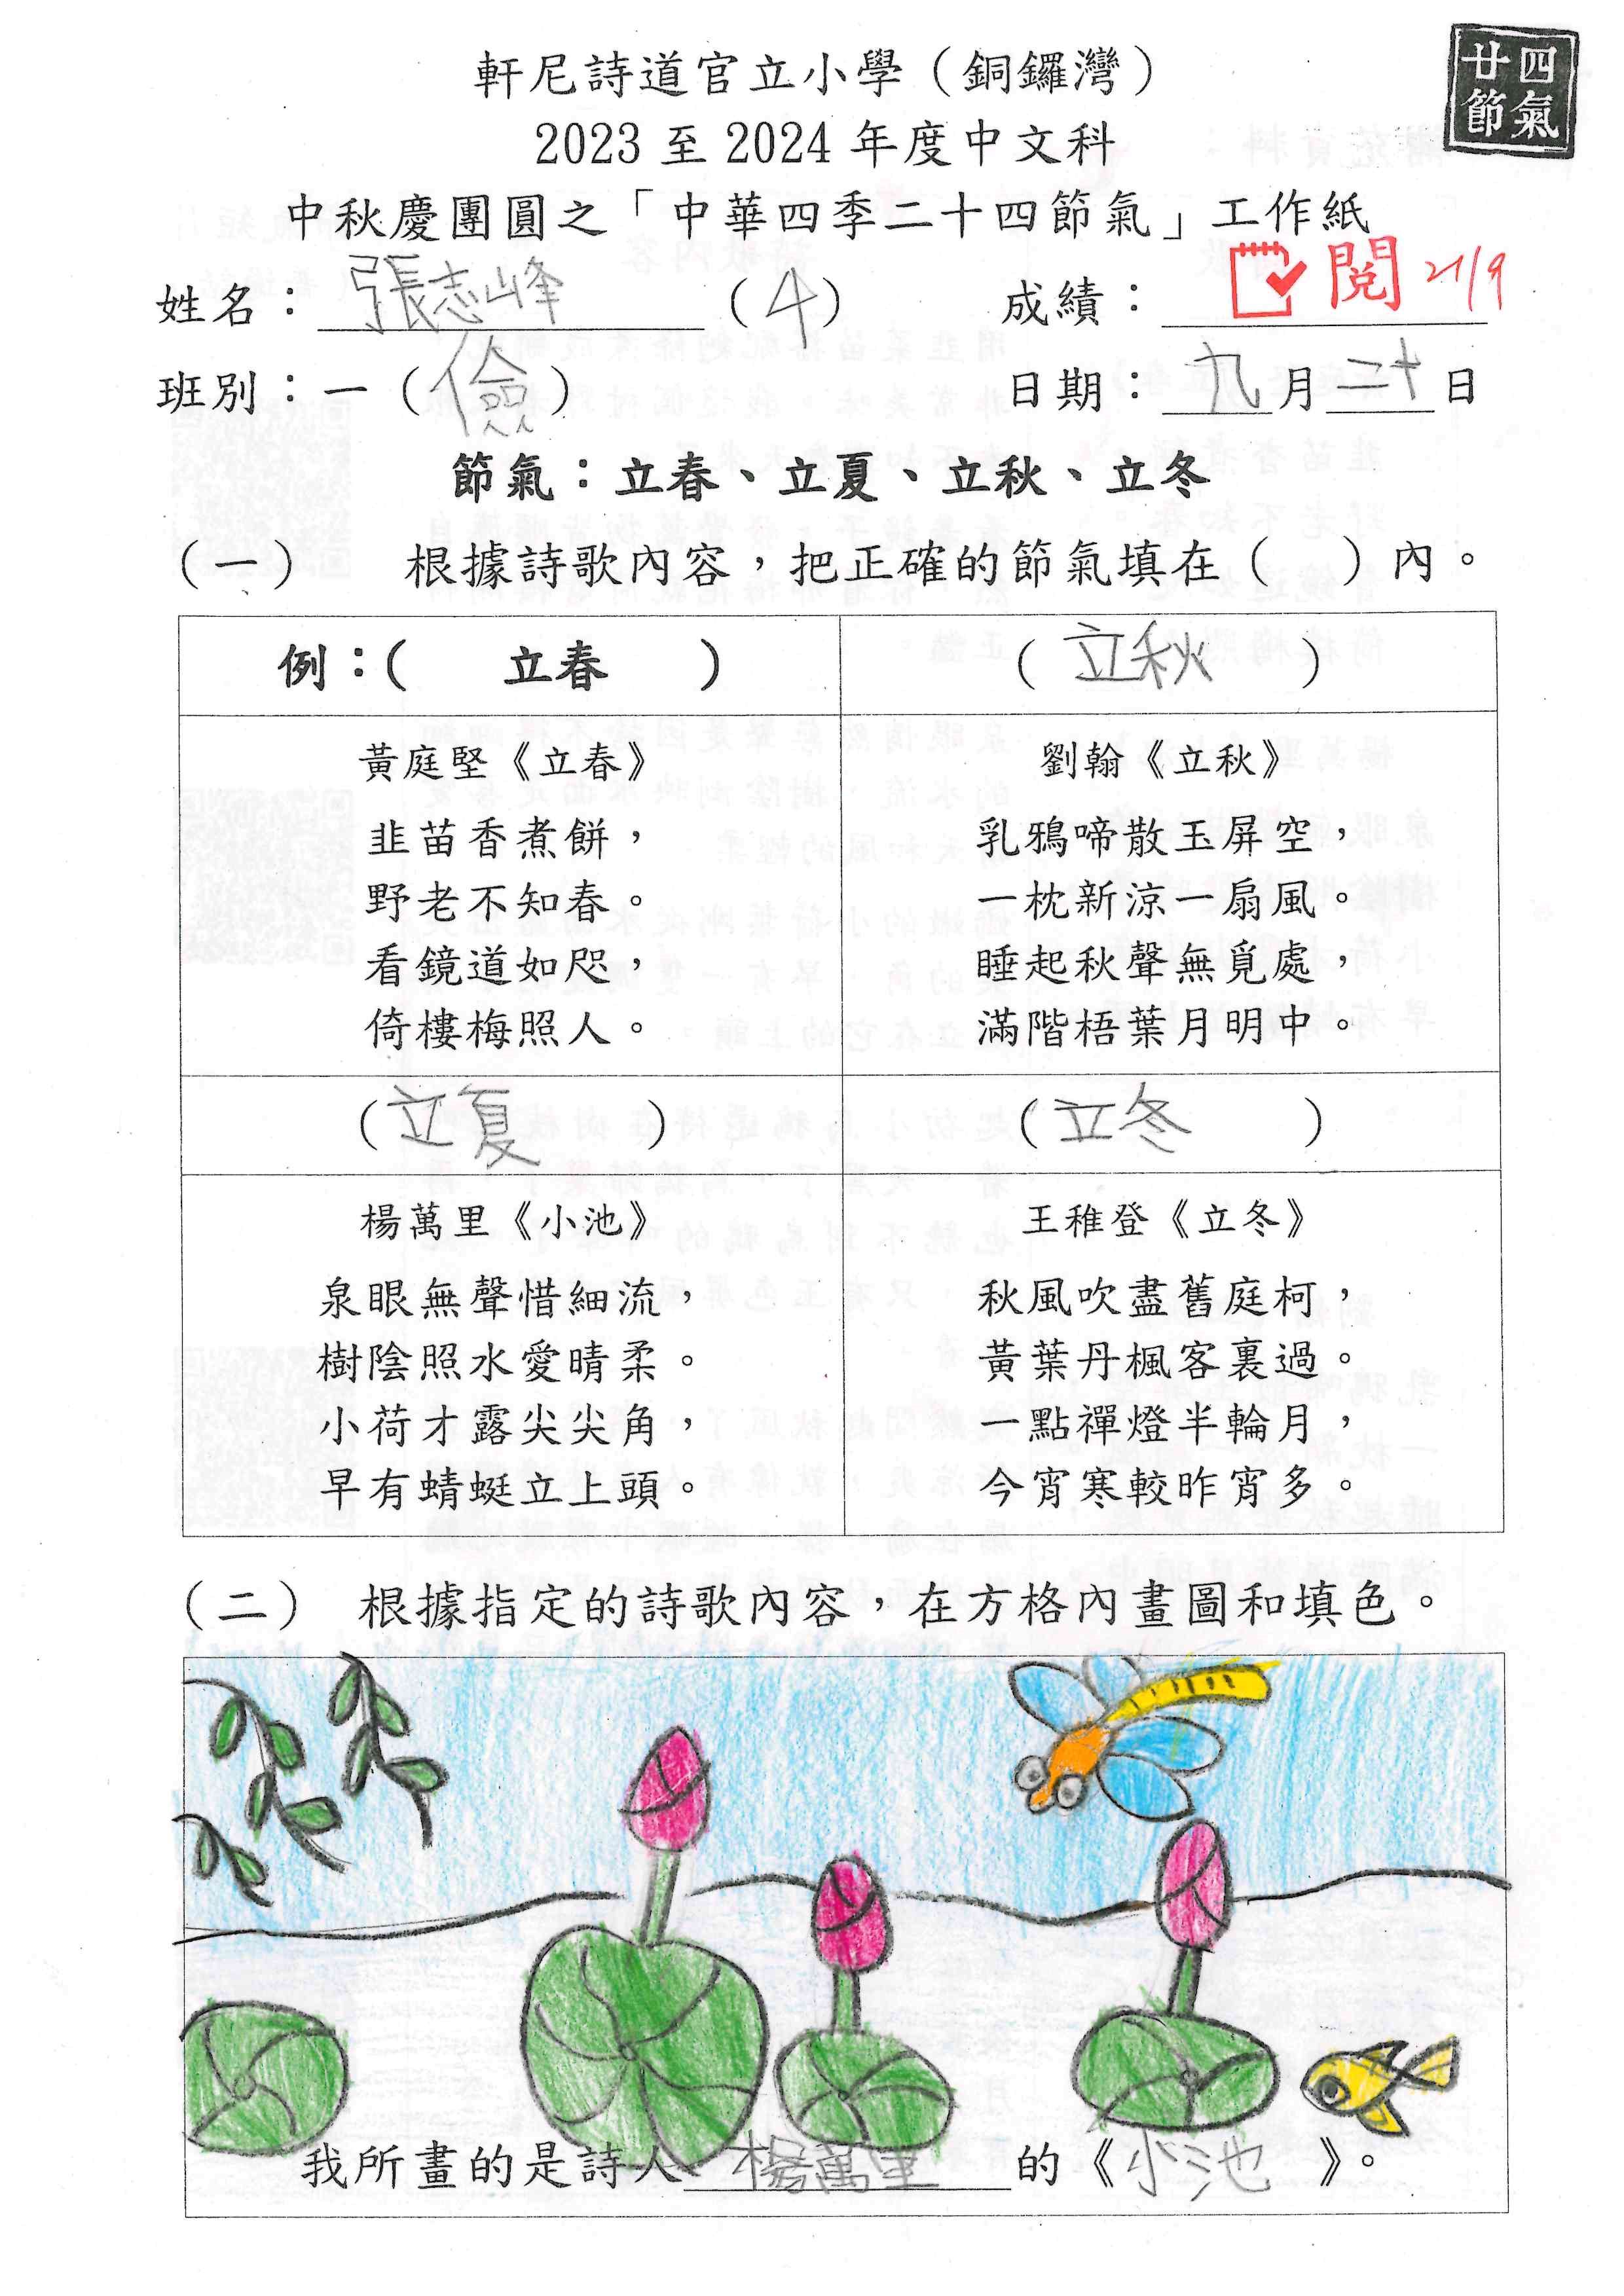 廿四
節氣
軒尼詩道官立小學（銅鑼灣）
2023 至 2024 年度中文科
中秋慶團圓之「中華四季二十四節氣」工作紙
姓名：張志峰（4） 成績：閱 21/9
班別：一（儉） 日期：九月二十日
節氣：立春、立夏、立秋、立冬
（一） 根據詩歌內容，把正確的節氣填在（ ）內。
例：（ 立春 ）
黃庭堅《立春》
韭苗香煮餅，
野老不知春。
看鏡道如咫，
倚樓梅照人。
（立秋）
劉翰《立秋》
乳鴉啼散玉屏空，
一枕新涼一扇風。
睡起秋聲無覓處，
滿階梧葉月明中。
（立夏）
楊萬里《小池》
泉眼無聲惜細流，
樹陰照水愛晴柔。
小荷才露尖尖角，
早有蜻蜓立上頭。
（立冬）
王稚登《立冬》
秋風吹盡舊庭柯，
黃葉丹楓客裏過。
一點禪燈半輪月，
今宵寒較昨宵多。
（二） 根據指定的詩歌內容，在方格內畫圖和填色。
我所畫的是詩人楊萬里的《小池》。